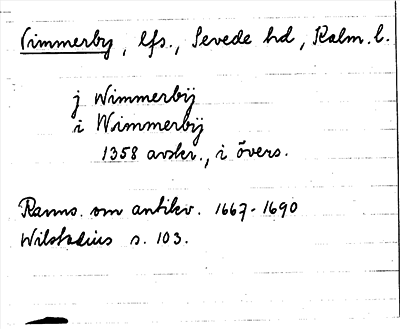 Vimmerby, lfs., Sevede hd, Kalm. l.
j Wimmerbÿ
i Wimmerbÿ
1358 avskr., i övers.
Ranns. om antikv. 1667-1690
Wilstadius s. 103.